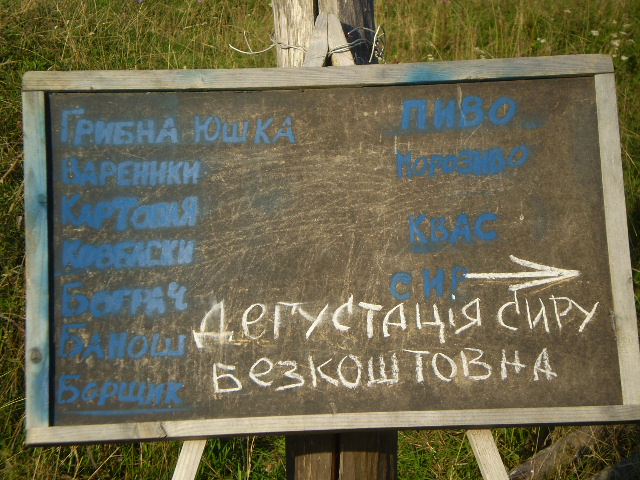 Грибна юшка
Вареники
Картопля
Ковбаски
Бограч
Банош
Борщик
Пиво
Морозиво
Квас
Сир
Дегустація сиру
Безкоштовна